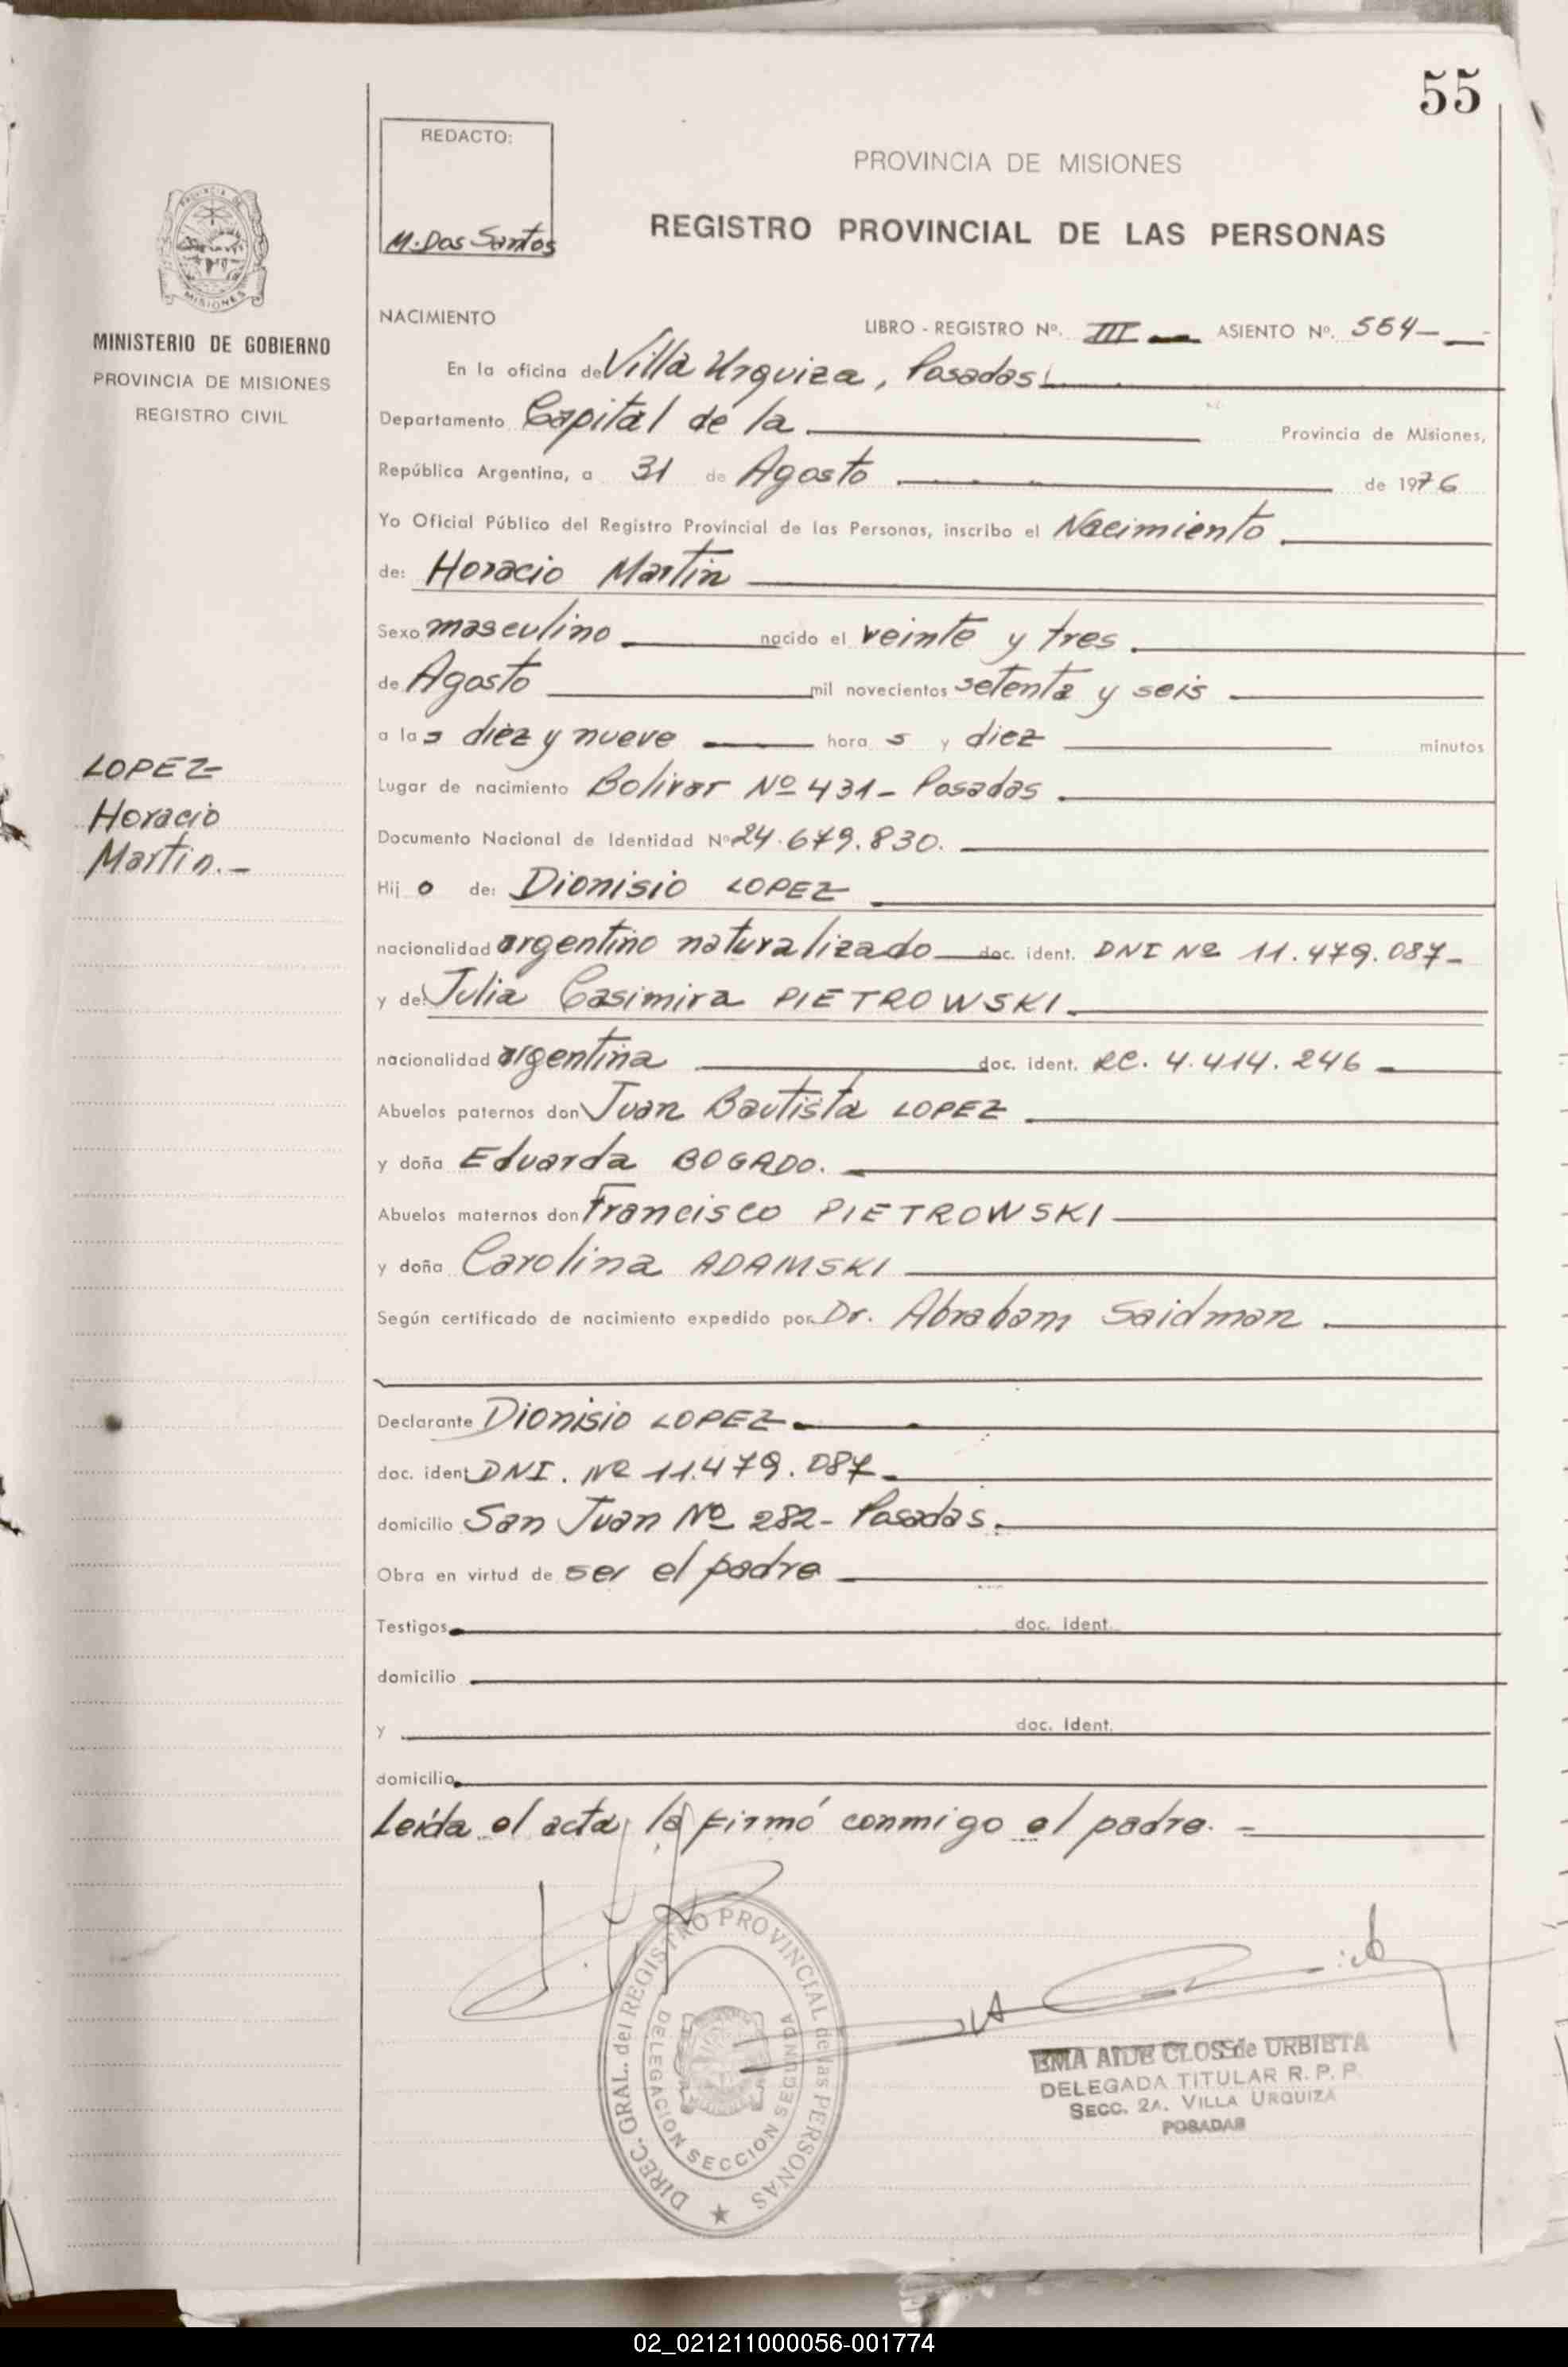 55
REDACTO:
M. Dos Santos
PROVINCIA DE MISIONES
REGISTRO PROVINCIAL DE LAS PERSONAS
MISIONES
MINISTERIO DE GOBIERNO
PROVINCIA DE MISIONES
REGISTRO CIVIL
NACIMIENTO
LIBRO - REGISTRO Nº. III ASIENTO Nº. 564-
En la oficina de Villa Urquiza, Posadas
Departamento Capital de la Provincia de Misiones,
República Argentina, a 31 de Agosto de 1976
Yo Oficial Público del Registro Provincial de las Personas, inscribo el Nacimiento
de: Horacio Martin
Sexo masculino nacido el veinte y tres
de Agosto mil novecientos setenta y seis
a las diez y nueve horas y diez minutos
LOPEZ
Horacio
Martin.-
Lugar de nacimiento Bolivar Nº 431- Posadas
Documento Nacional de Identidad Nº 24.679.830.
Hijo de: Dionisio LOPEZ
nacionalidad argentino naturalizado doc. ident. DNI Nº 11.479.087-
y de: Julia Casimira PIETROWSKI
nacionalidad argentina doc. ident. LC. 4.414.246
Abuelos paternos don Juan Bautista LOPEZ
y doña Eduarda BOGADO.
Abuelos maternos don Francisco PIETROWSKI
y doña Carolina ADAMSKI
Según certificado de nacimiento expedido por Dr. Abraham Saidman
Declarante Dionisio LOPEZ
doc. ident DNI. Nº 11.479.087
domicilio San Juan Nº 282- Posadas.
Obra en virtud de ser el padre
Testigos doc. ident.
domicilio
y doc. ident.
domicilio
Leída el acta, la firmó conmigo el padre.-
DIREC. GRAL. del REGISTRO PROVINCIAL de las PERSONAS
DELEGACION SECCION SEGUNDA
EMA AIDE CLOSS de URBIETA
DELEGADA TITULAR R. P. P.
SECC. 2A. VILLA URQUIZA
POSADAS
02_021211000056-001774